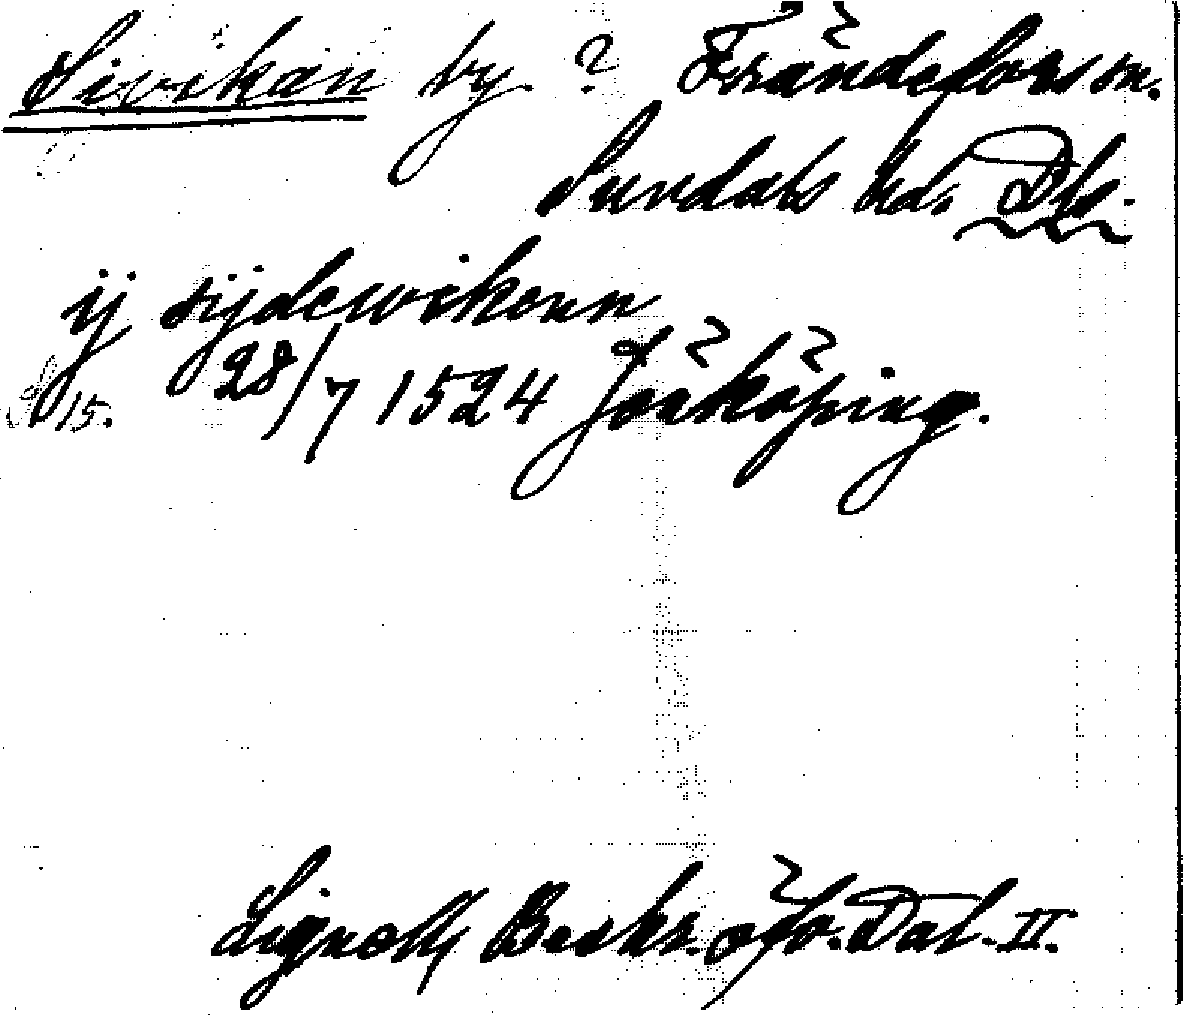 Sivikan by. ? Frändefors sn.
Sundals hd. Dls.
ij sijdewikonn
s. 15. 28/7 1524 Jönköping.
Lignell, Beskr. öfv. Dal. II.